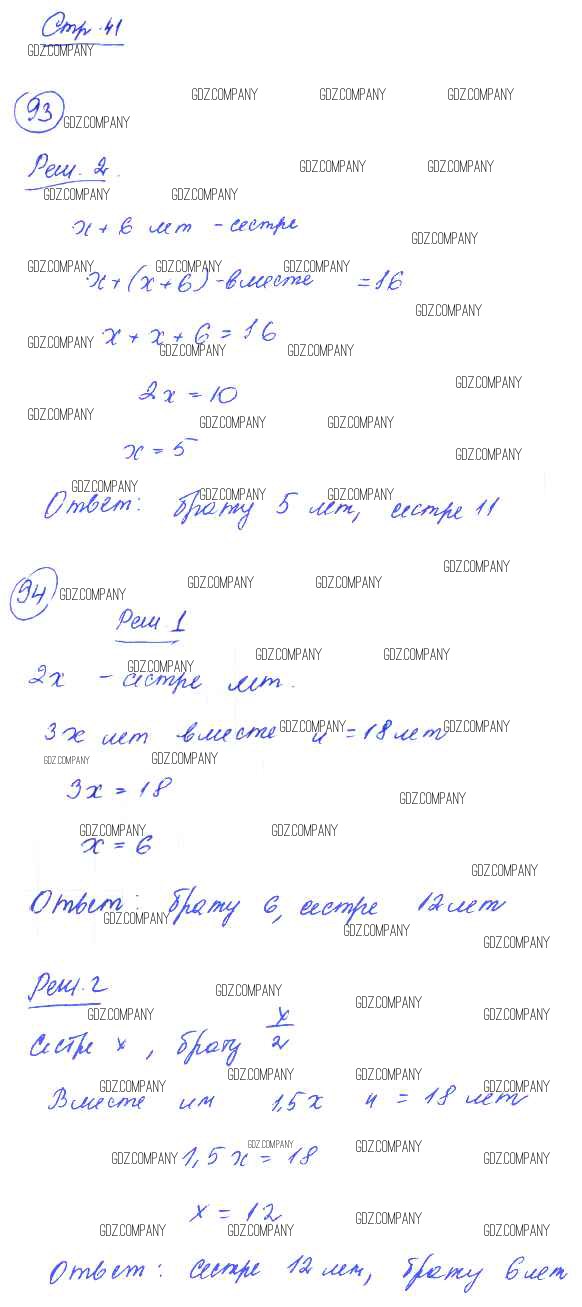 Стр. 41
GDZ.COMPANY
GDZ.COMPANY GDZ.COMPANY GDZ.COMPANY
93
GDZ.COMPANY
Реш. 2.
GDZ.COMPANY GDZ.COMPANY
GDZ.COMPANY GDZ.COMPANY
x + 6 лет - сестре
GDZ.COMPANY
GDZ.COMPANY GDZ.COMPANY GDZ.COMPANY
x + (x + 6) - вместе = 16
GDZ.COMPANY
x + x + 6 = 16
GDZ.COMPANY GDZ.COMPANY GDZ.COMPANY
GDZ.COMPANY
2x = 10
GDZ.COMPANY GDZ.COMPANY GDZ.COMPANY
x = 5
GDZ.COMPANY
GDZ.COMPANY GDZ.COMPANY GDZ.COMPANY
Ответ: брату 5 лет, сестре 11
GDZ.COMPANY
94
GDZ.COMPANY GDZ.COMPANY GDZ.COMPANY
Реш. 1
GDZ.COMPANY GDZ.COMPANY
GDZ.COMPANY
2x - сестре лет.
3x лет вместе и = 18 лет
GDZ.COMPANY GDZ.COMPANY
GDZ.COMPANY GDZ.COMPANY
3x = 18
GDZ.COMPANY
GDZ.COMPANY GDZ.COMPANY
x = 6
GDZ.COMPANY
Ответ: брату 6, сестре 12 лет
GDZ.COMPANY GDZ.COMPANY
GDZ.COMPANY
Реш. 2
GDZ.COMPANY GDZ.COMPANY
GDZ.COMPANY GDZ.COMPANY
Сестре x, брату x/2
GDZ.COMPANY GDZ.COMPANY GDZ.COMPANY GDZ.COMPANY
Вместе им 1,5x и = 18 лет
GDZ.COMPANY GDZ.COMPANY
1,5x = 18
GDZ.COMPANY GDZ.COMPANY
x = 12
GDZ.COMPANY GDZ.COMPANY GDZ.COMPANY GDZ.COMPANY
Ответ: сестре 12 лет, брату 6 лет